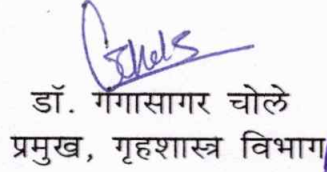 डॉ. गंगासागर चोले
प्रमुख, गृहशास्त्र विभाग